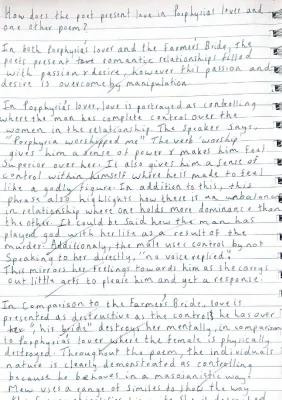 How does the poet present love in Porphyria's lover and
one other poem?
In both Porphyria's lover and the Farmer's Bride, the
poets present love romantic relationships filled
with passion & desire, however this passion and
desire is overcome by manipulation.
In Porphyria's lover, love is portrayed as controlling
where the man has complete control over the
women in the relationship. The speaker says,
"Porphyria worshipped me". The verb 'worship'
gives him a sense of power & makes him feel
superior over her. It also gives him a sense of
control within himself where he's made to feel
like a godly figure. In addition to this, this
phrase also highlights how there is an unbalance
in relationship where one holds more dominance than
the other. It could be said how the man has
played god with her life as a result of the
murder. Additionaly, the male uses control by not
speaking to her directly, "no voice replied".
This mirrors her feelings towards him as she carrys
out little acts to please him and get a response.
In Comparison to the Farmer's Bride, love is
presented as destructive as the control he has over
her "his bride" destroys her mentally, in comparison
to Porphyria's lover where the female is physically
destroyed. Throughout the poem, the individuals
nature is clearly demonstrated as controlling
because he behaves in a masoganistic way.
Mew uses a range of similes to show the way